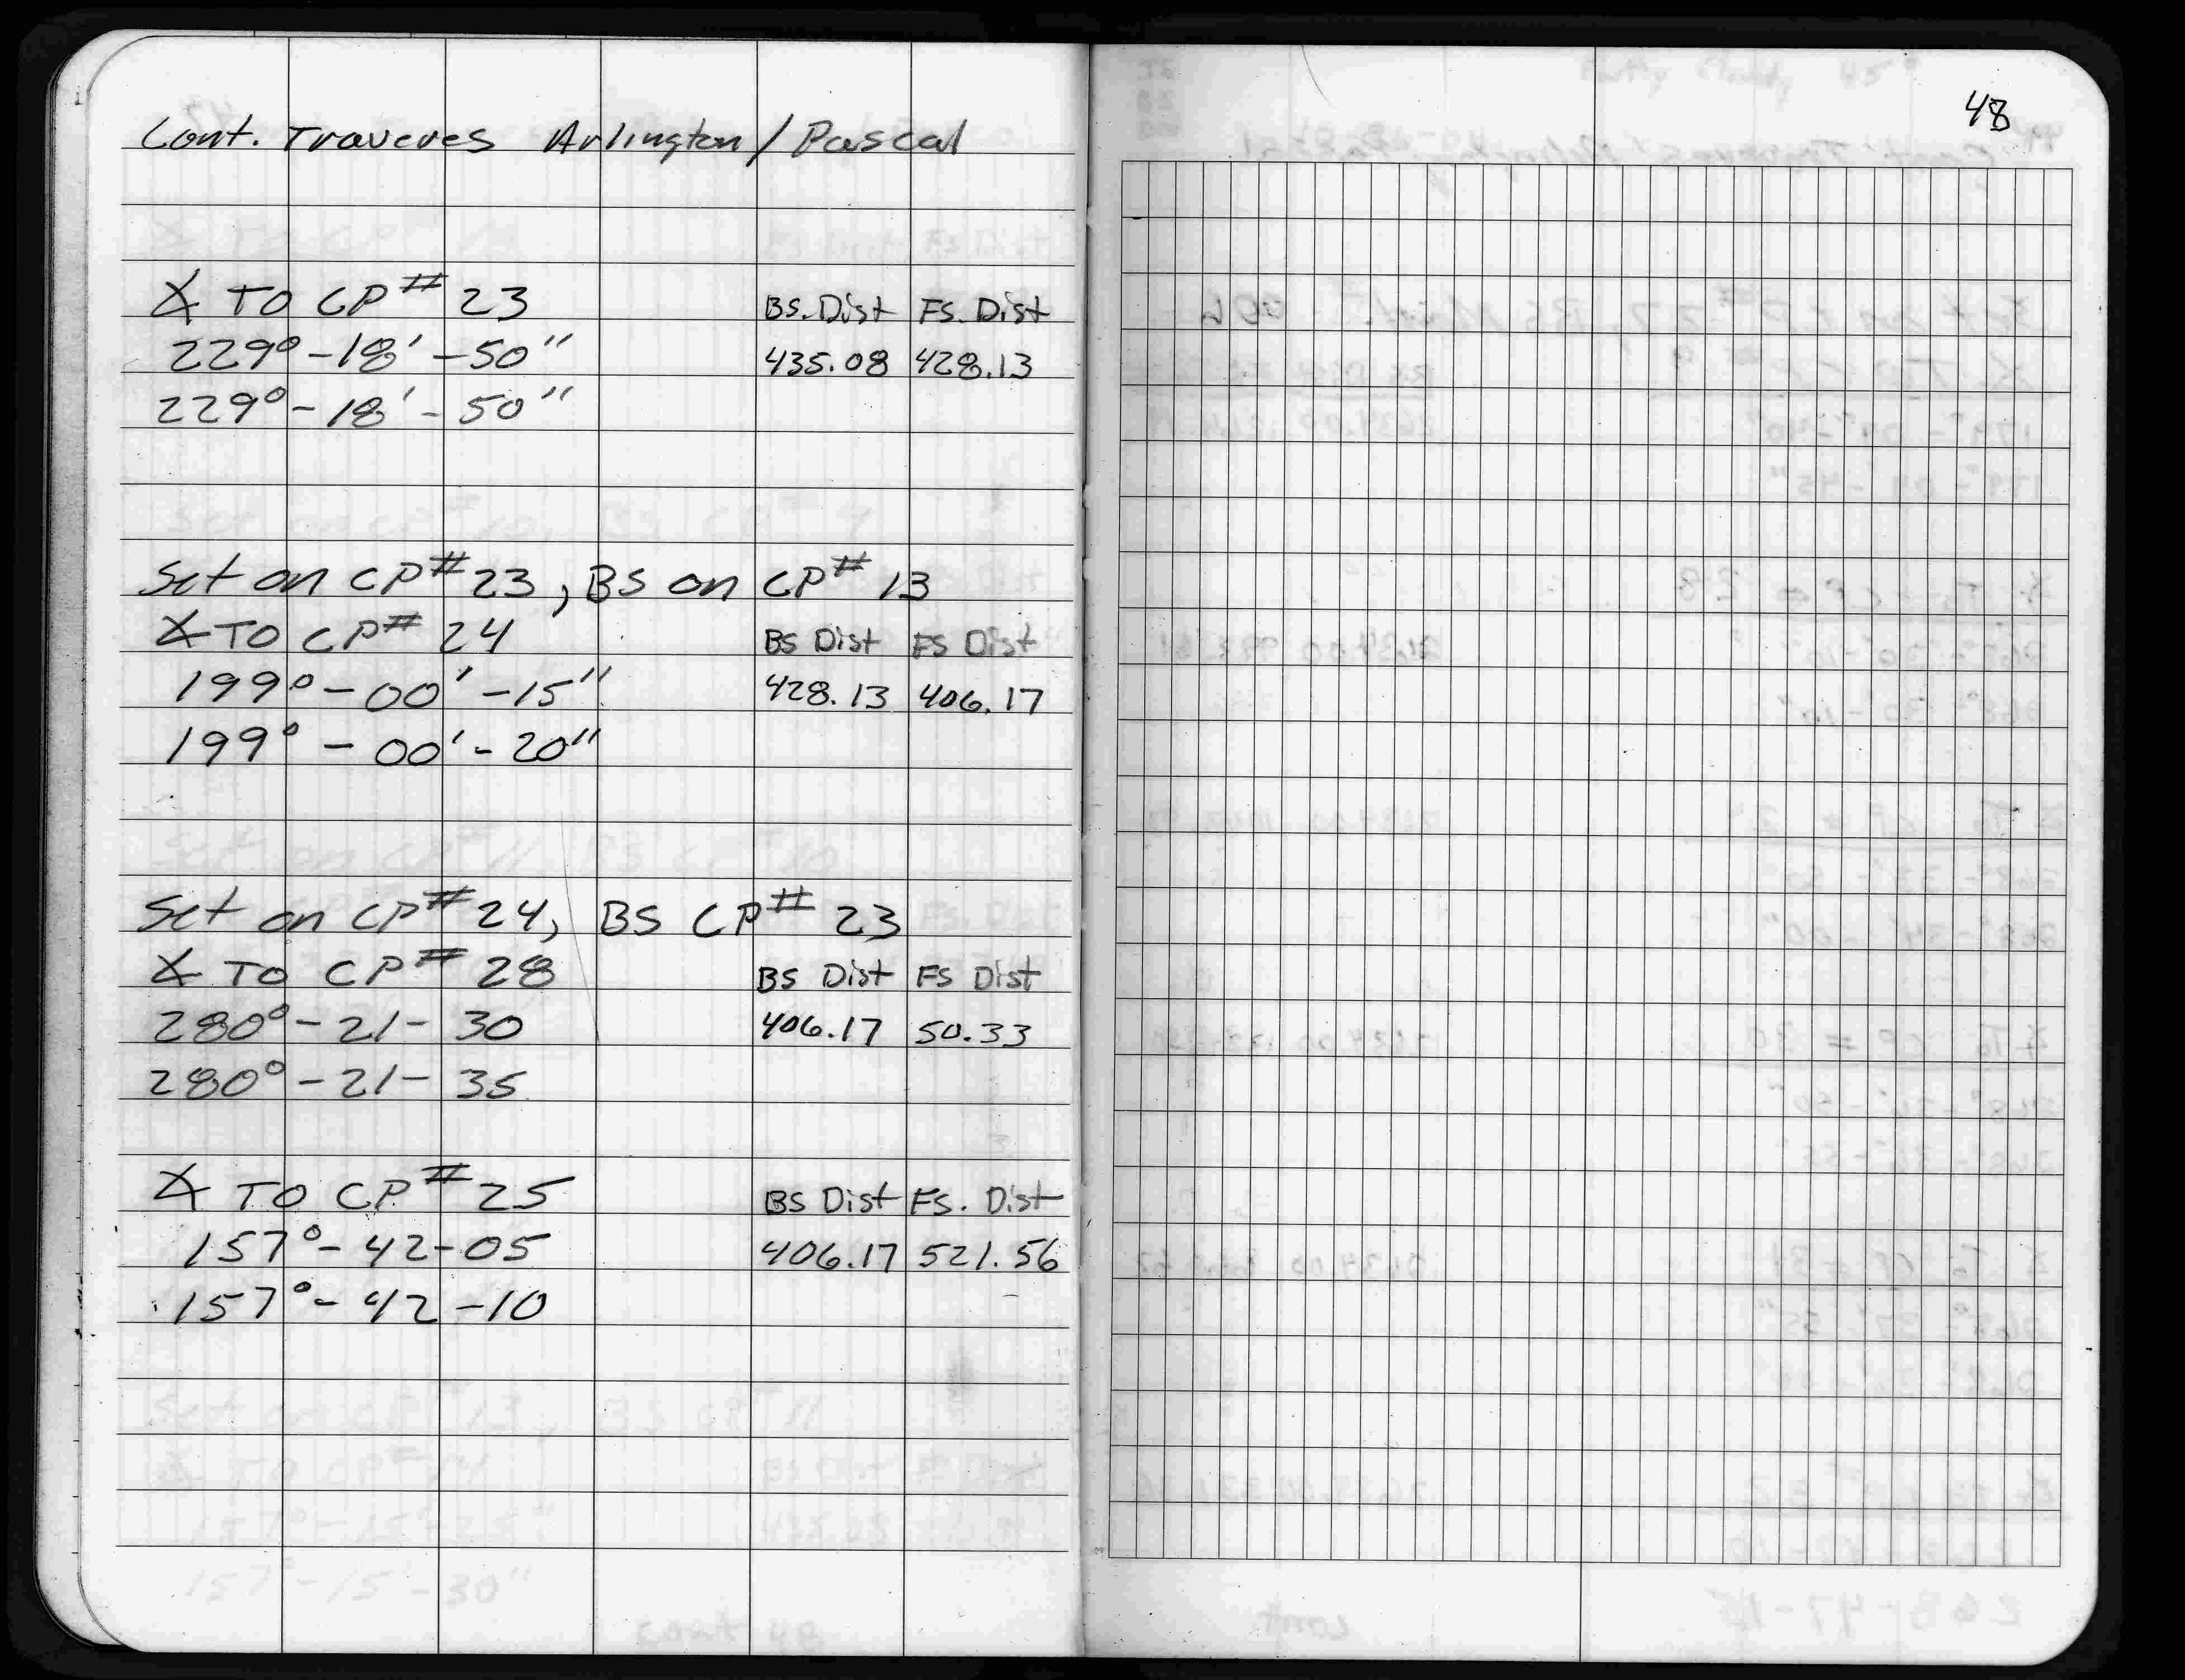 48
Cont. Traveres Arlington / Pascal
∡ TO CP# 23 BS. Dist FS. Dist
229° - 18' - 50" 435.08 428.13
229° - 18' - 50"
Set on CP# 23, BS on CP# 13
∡ TO CP# 24 BS Dist FS Dist
199° - 00' - 15" 428.13 406.17
199° - 00' - 20"
Set on CP# 24, BS CP# 23
∡ TO CP# 28 BS Dist FS Dist
280° - 21 - 30 406.17 50.33
280° - 21 - 35
∡ TO CP# 25 BS Dist FS. Dist
157° - 42 - 05 406.17 521.56
157° - 42 - 10